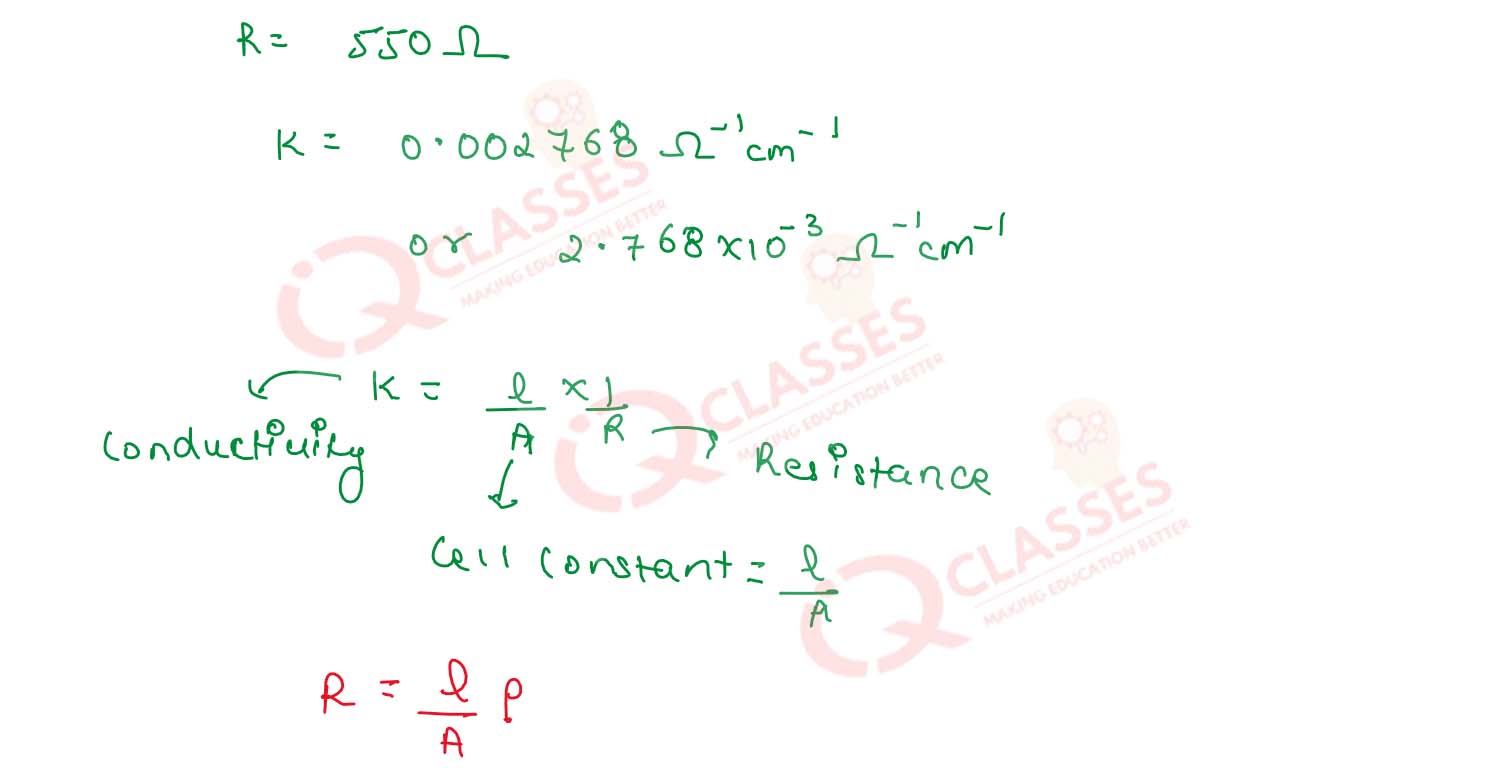 R = 550 Ω
K = 0.002768 Ω⁻¹cm⁻¹
or 2.768×10⁻³ Ω⁻¹cm⁻¹
K = l/A × 1/R
Conductivity
Resistance
Cell constant = l/A
R = l/A ρ
iQ CLASSES
MAKING EDUCATION BETTER
iQ CLASSES
MAKING EDUCATION BETTER
iQ CLASSES
MAKING EDUCATION BETTER